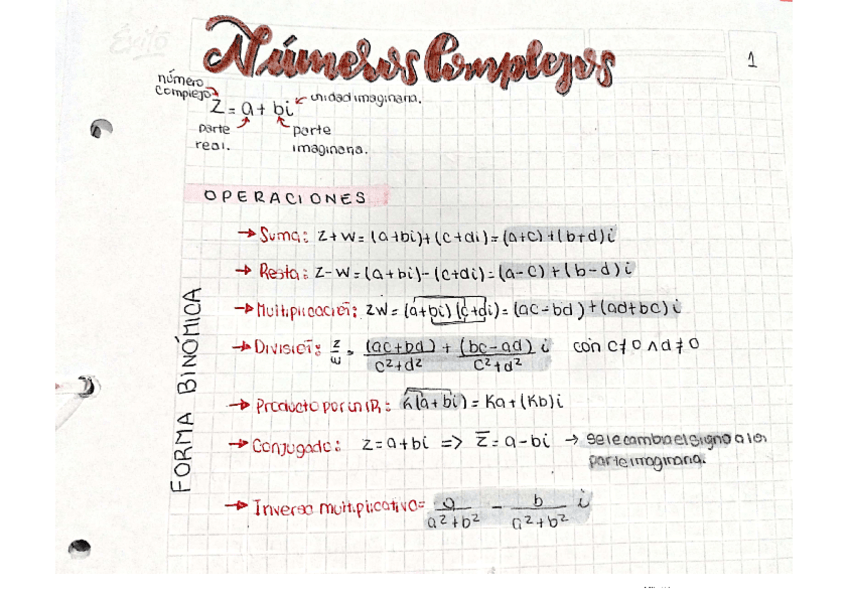 Éxito
Números Complejos
1
número
complejo
Z = a + bi
unidad imaginaria.
parte
real.
parte
imaginaria.
OPERACIONES
FORMA BINÓMICA
→ Suma: z+w = (a+bi)+(c+di) = (a+c)+(b+d)i
→ Resta: z-w = (a+bi)-(c+di) = (a-c)+(b-d)i
→ Multiplicación: zw = (a+bi)(c+di) = (ac-bd)+(ad+bc)i
→ División: z/w = (ac+bd)/(c²+d²) + (bc-ad)/(c²+d²) i con c≠0 ∧ d≠0
→ Producto por un R: K(a+bi) = Ka+(Kb)i
→ Conjugado: z=a+bi => z̅=a-bi → se le cambia el signo a la
parte imaginaria.
→ Inverso multiplicativo= a/(a²+b²) - b/(a²+b²) i